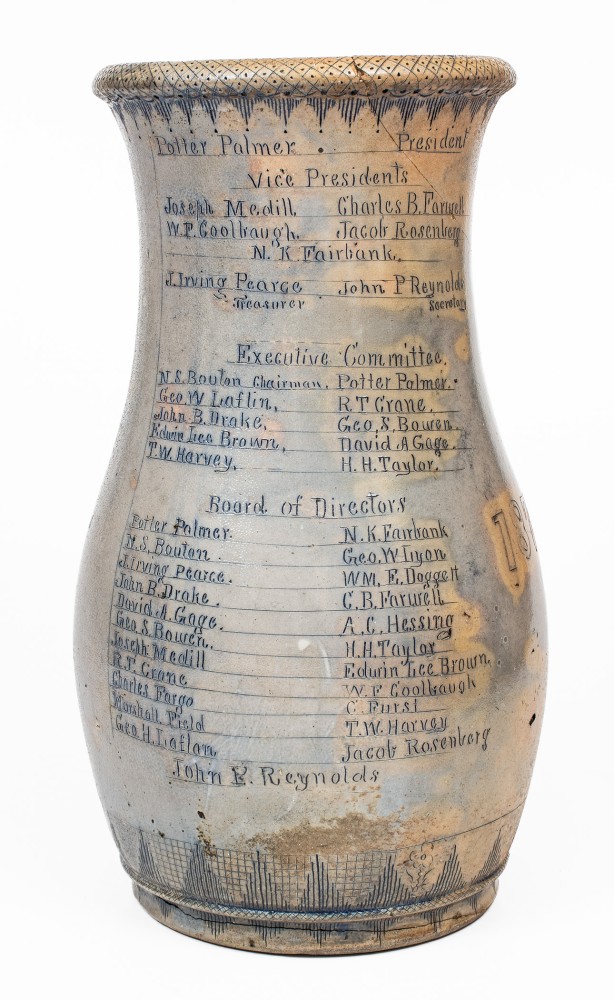 Potter Palmer . President
Vice Presidents
Joseph Medill Charles B. Farwell
W.F. Coolbaugh. Jacob Rosenberg
N. K. Fairbank.
J. Irving Pearce John P Reynolds
Treasurer Secretary
Executive Committee.
N.S. Bouton Chairman, Potter Palmer.
Geo. W Laflin, R.T Crane.
John B. Drake, Geo. S. Bowen.
Edwin Lee Brown, David A Gage.
T.W. Harvey. H.H. Taylor.
Board of Directors
Potter Palmer. N.K. Fairbank
N.S. Bouton. Geo. W Lyon
J. Irving Pearce. WM. E. Doggett
John B. Drake. C.B. Farwell
David A. Gage. A.C. Hessing
Geo. S. Bowen. H.H. Taylor
Joseph Medill Edwin Lee Brown,
R.T. Crane W.F Coolbaugh
Charles Fargo C. Furst
Marshall Field T.W. Harvey
Geo. H. Laflan Jacob Rosenberg
John P. Reynolds